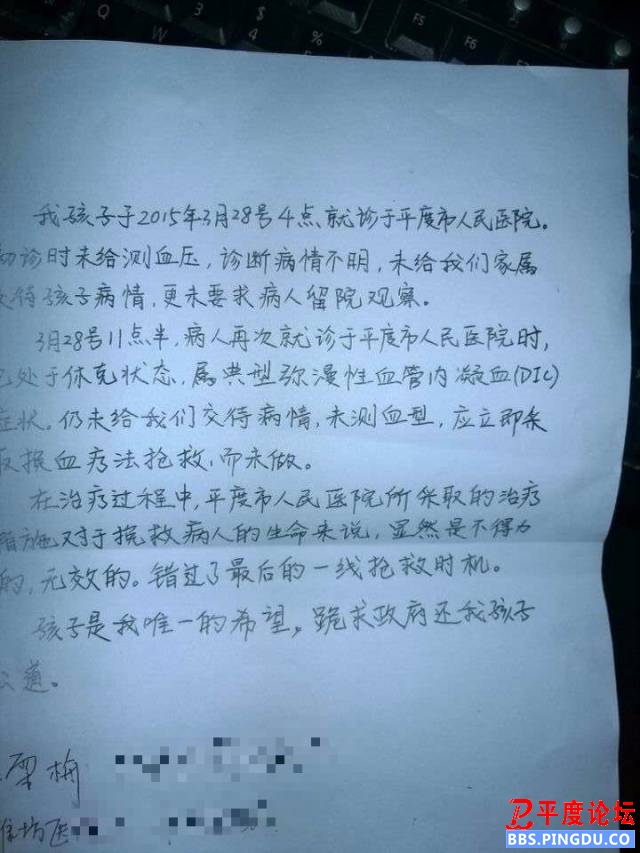 Q W 3 $ 4 % F5 F6
我孩子于2015年3月28号4点就诊于平度市人民医院。
初诊时未给测血压，诊断病情不明，未给我们家属
交待孩子病情，更未要求病人留院观察。
3月28号11点半，病人再次就诊于平度市人民医院时，
已处于休克状态，属典型弥漫性血管内凝血(DIC)
症状。仍未给我们交待病情，未测血型，应立即采
取换血疗法抢救，而未做。
在治疗过程中，平度市人民医院所采取的治疗
措施对于挽救病人的生命来说，显然是不得力
的，无效的。错过了最后的一线抢救时机。
孩子是我唯一的希望，跪求政府还我孩子
公道。
梁梅
潍坊医
平度论坛
BBS.PINGDU.CO